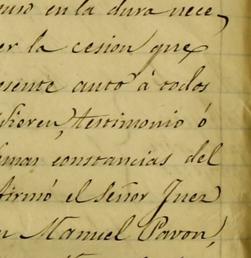 en la dura nece,
er la cesion que
esente auto á todos
dieren, testimonio ó
emas constancias del
firmó el Señor Juez
n Manuel Pavon,